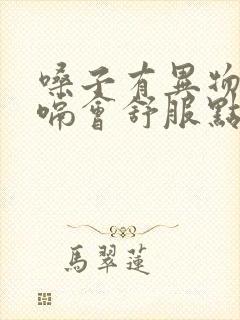 嗓子有異物
嗝會舒服點
馬翠蓮